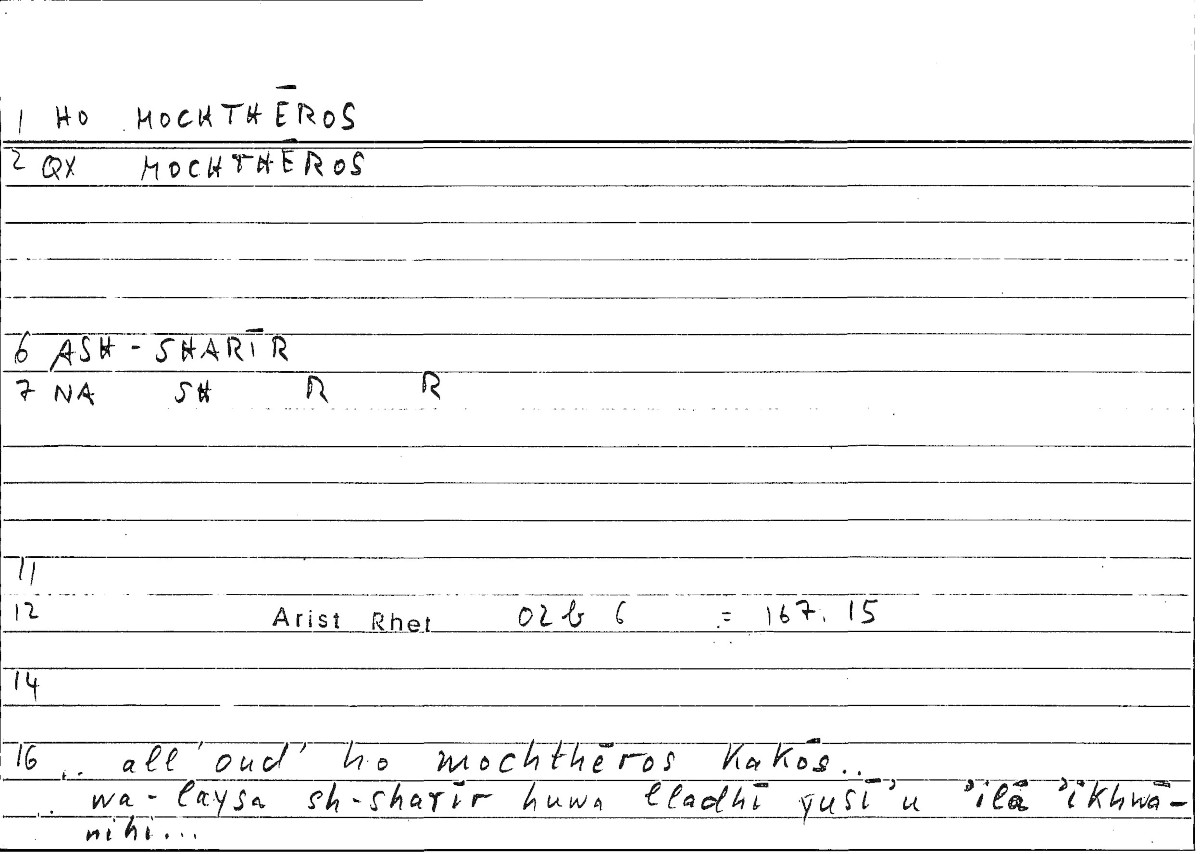 1 HO MOCHTHĒROS
2 QX MOCHTHĒROS
6 ASH-SHARĪR
7 NA SH R R
11
12 Arist Rhet 02 b 6 = 167. 15
14
16 .. all' oud' ho mochthēros kakōs..
. wa-laysa sh-sharīr huwa lladhī yusī'u 'ilā 'ikhwā-
nihi...